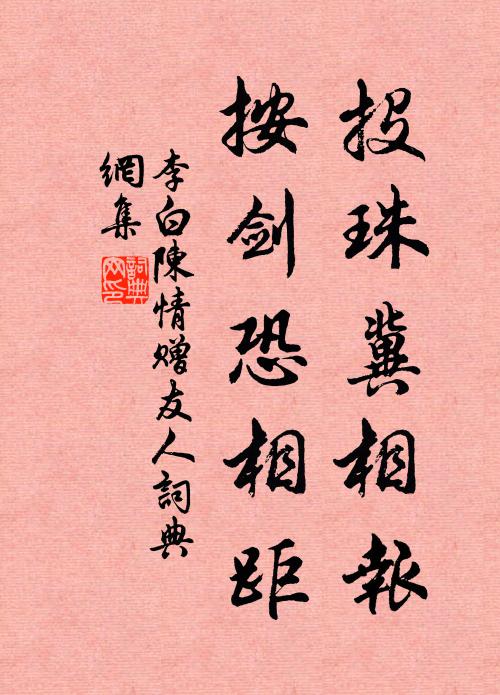 投珠冀相報
按剑恐相距
李白陳情赠友人詞典
網集
詞典
网印